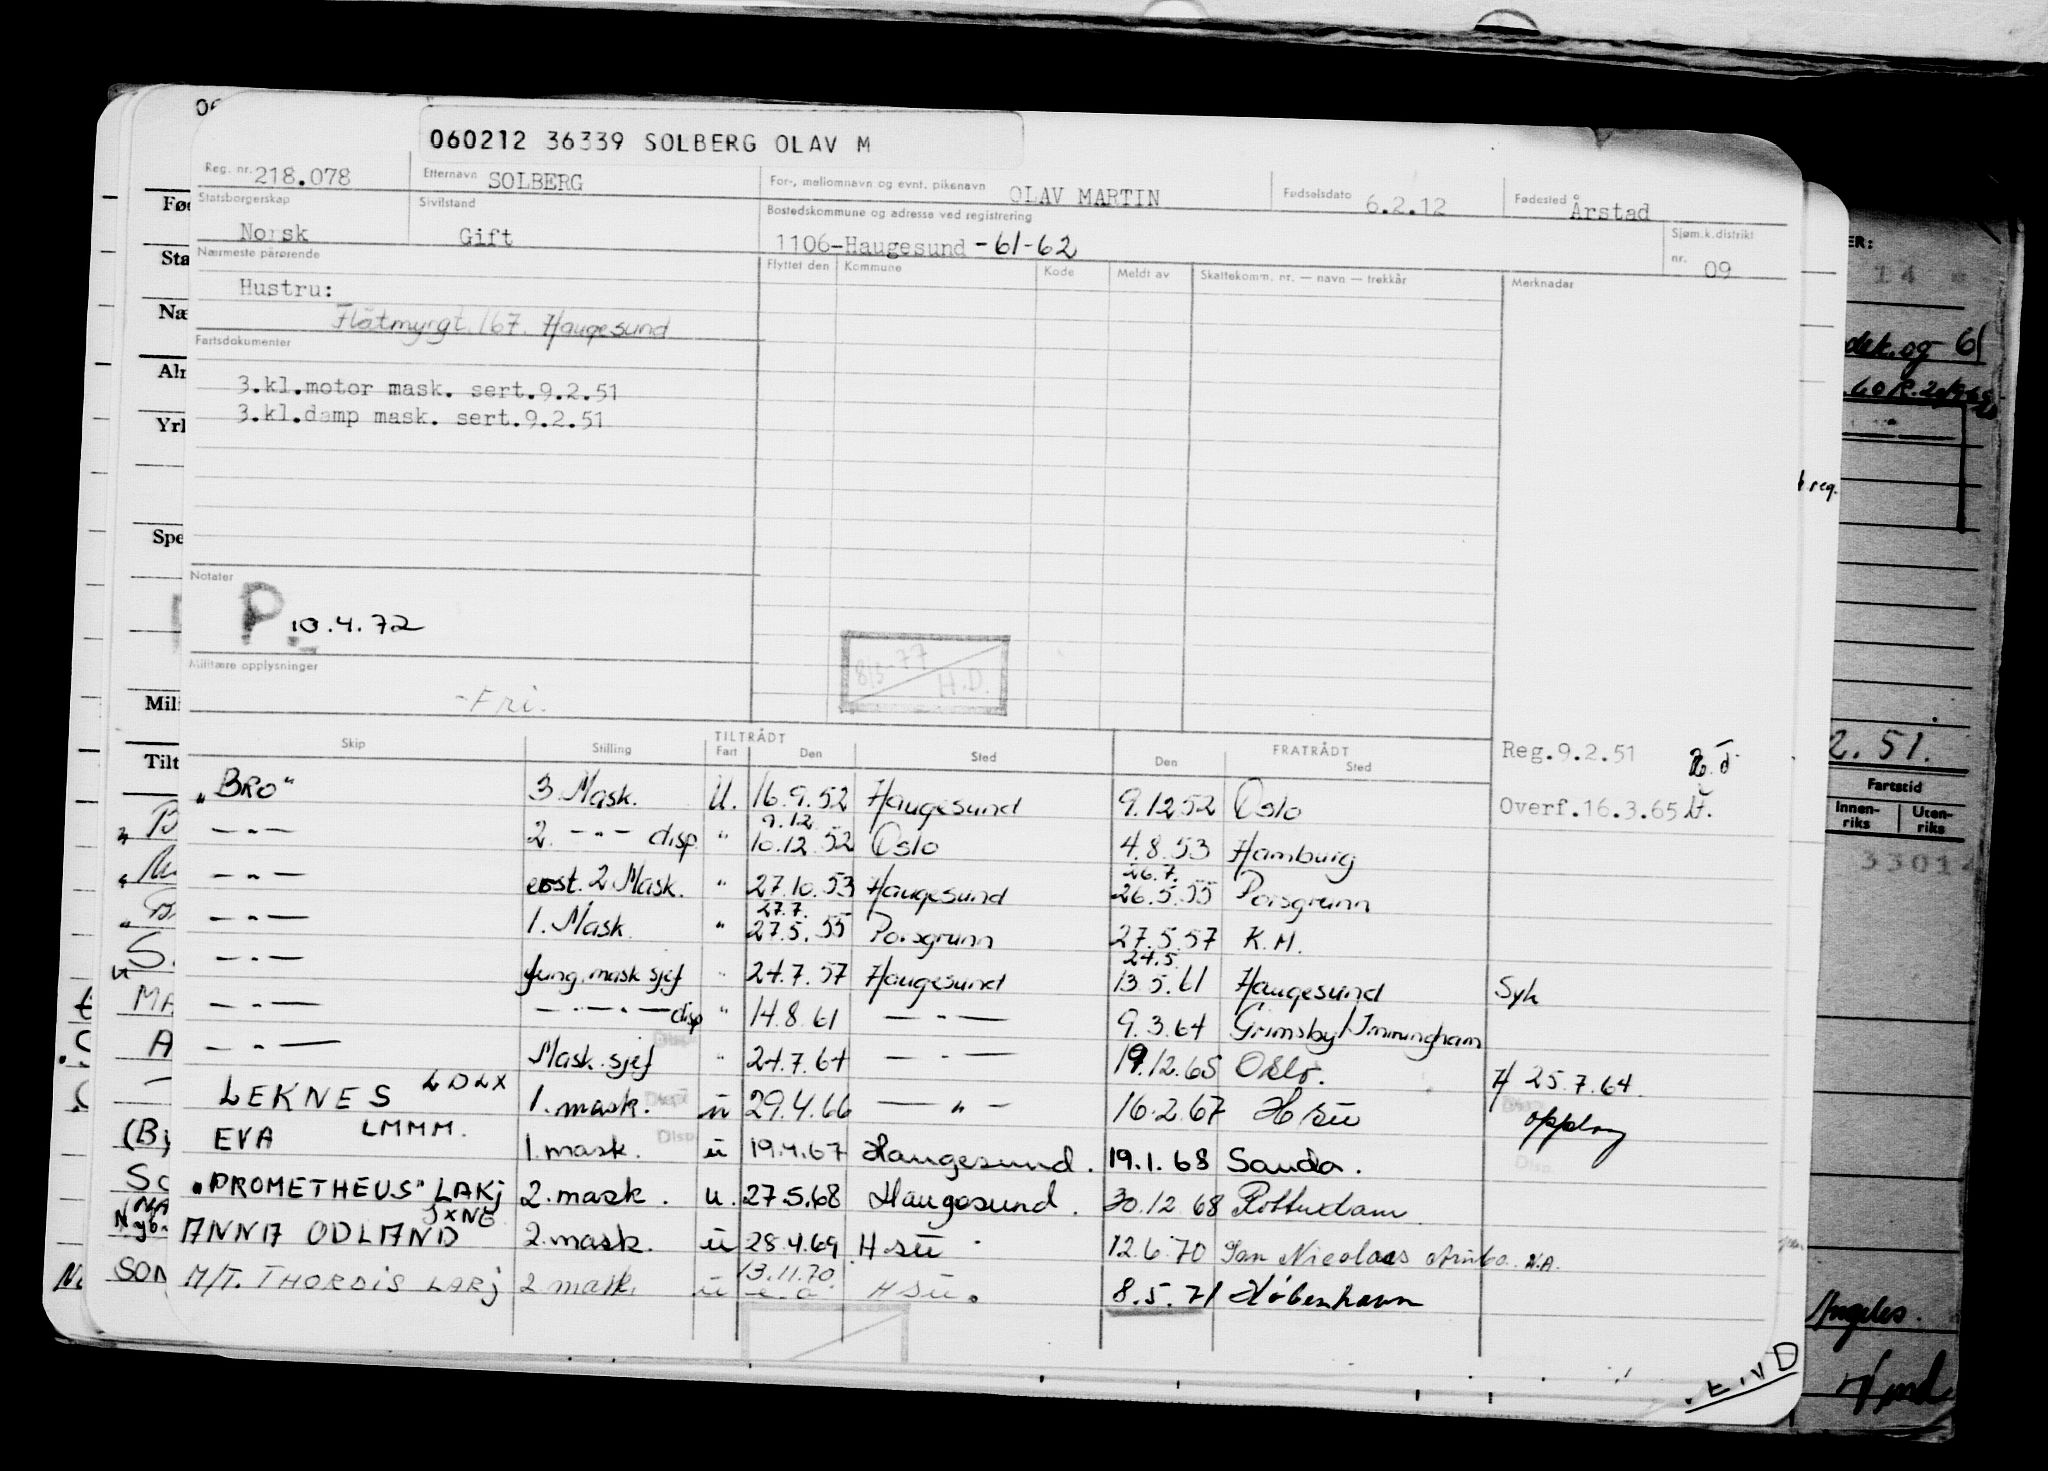 060212 36339 SOLBERG OLAV M
Reg. nr. 218.078 Etternavn SOLBERG For-, mellomnavn og evnt. pikenavn OLAV MARTIN Fødselsdato 6.2.12 Fødested Årstad
Statsborgerskap Norsk Sivilstand Gift Bostedskommune og adresse ved registrering 1106-Haugesund -61-62 Sjøm.k.distrikt nr. 09
Nærmeste pårørende Flyttet den Kommune Kode Meldt av Skattekomm. nr. — navn — trekkår Merknader
Hustru:
Flåtmyrgt. 167. Haugesund
Fartsdokumenter
3.kl.motor mask. sert.9.2.51
3.kl.damp mask. sert.9.2.51
Notater
P. 10.4.72
Militære opplysninger
8/3-77 H.D.
-Fri.
TILTRÅDT FRATRÅDT
Skip Stilling Fart Den Sted Den Sted
Reg.9.2.51
Overf.16.3.65
„BRO“ 3. Mask. U. 16.9.52 Haugesund 9.12.52 Oslo
9.12
— „ — 2. — „ — disp. " 10.12.52 Oslo 4.8.53 Hamburg
26.7.
— „ — 2 Mask. " 27.10.53 Haugesund 26.5.55 Porsgrunn
27.7.
— „ — 1. Mask. " 27.5.55 Porsgrunn 27.5.57 K.M.
24.5
— „ — fung. mask sjef " 24.7.57 Haugesund 13.5.61 Haugesund Syk
— „ — — „ — „ — disp " 14.8.61 — „ — 9.3.64 Grimsby/Immingham
— „ — Mask. sjef " 24.7.64 — „ — 19.12.65 Oslo. 25.7.64
LEKNES LDLX 1. mask. u 29.4.66 — „ — 16.2.67 Hsu opplag
EVA LMMM. 1. mask. u 19.4.67 Haugesund. 19.1.68 Sauda.
„PROMETHEUS“ LAKJ 2. mask. u. 27.5.68 Haugesund. 30.12.68 Rotterdam
JXNE
ANNA ODLAND 2. mask. u 28.4.69 H-su 12.6.70 San Nicolaes Aruba N.A.
13.11.70
M/T. THORDIS LARJ 2 mask. u Hsu. 8.5.71 København
Fartstid
Innen-riks Uten-riks
2.51.
3301
Angeles.